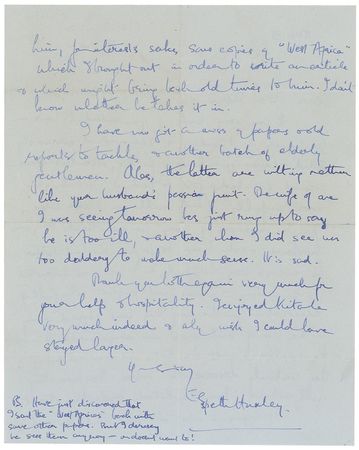 him, for interests sake, some copies of "West Africa"
which I bought out in order to write an article
& which might bring back old times to him. I don't
know whether he takes it in.
I have now got a mass of papers & old
reports to tackle, & another batch of elderly
gentlemen. Alas, the latter are wilting rather
like your husband's passion fruit. The wife of one
I was seeing tomorrow has just rung up to say
he is too ill, & another whom I did see was
too doddery to make much sense. It is sad.
Thank you both again very much for
your help & hospitality. I enjoyed Kitale
very much indeed & only wish I could have
stayed longer.
Yours
Elspeth Huxley.
PS. Have just discovered that
I sent the "West Africas" back with
some other papers. But I daresay
he sees them anyway - or doesn't want to!